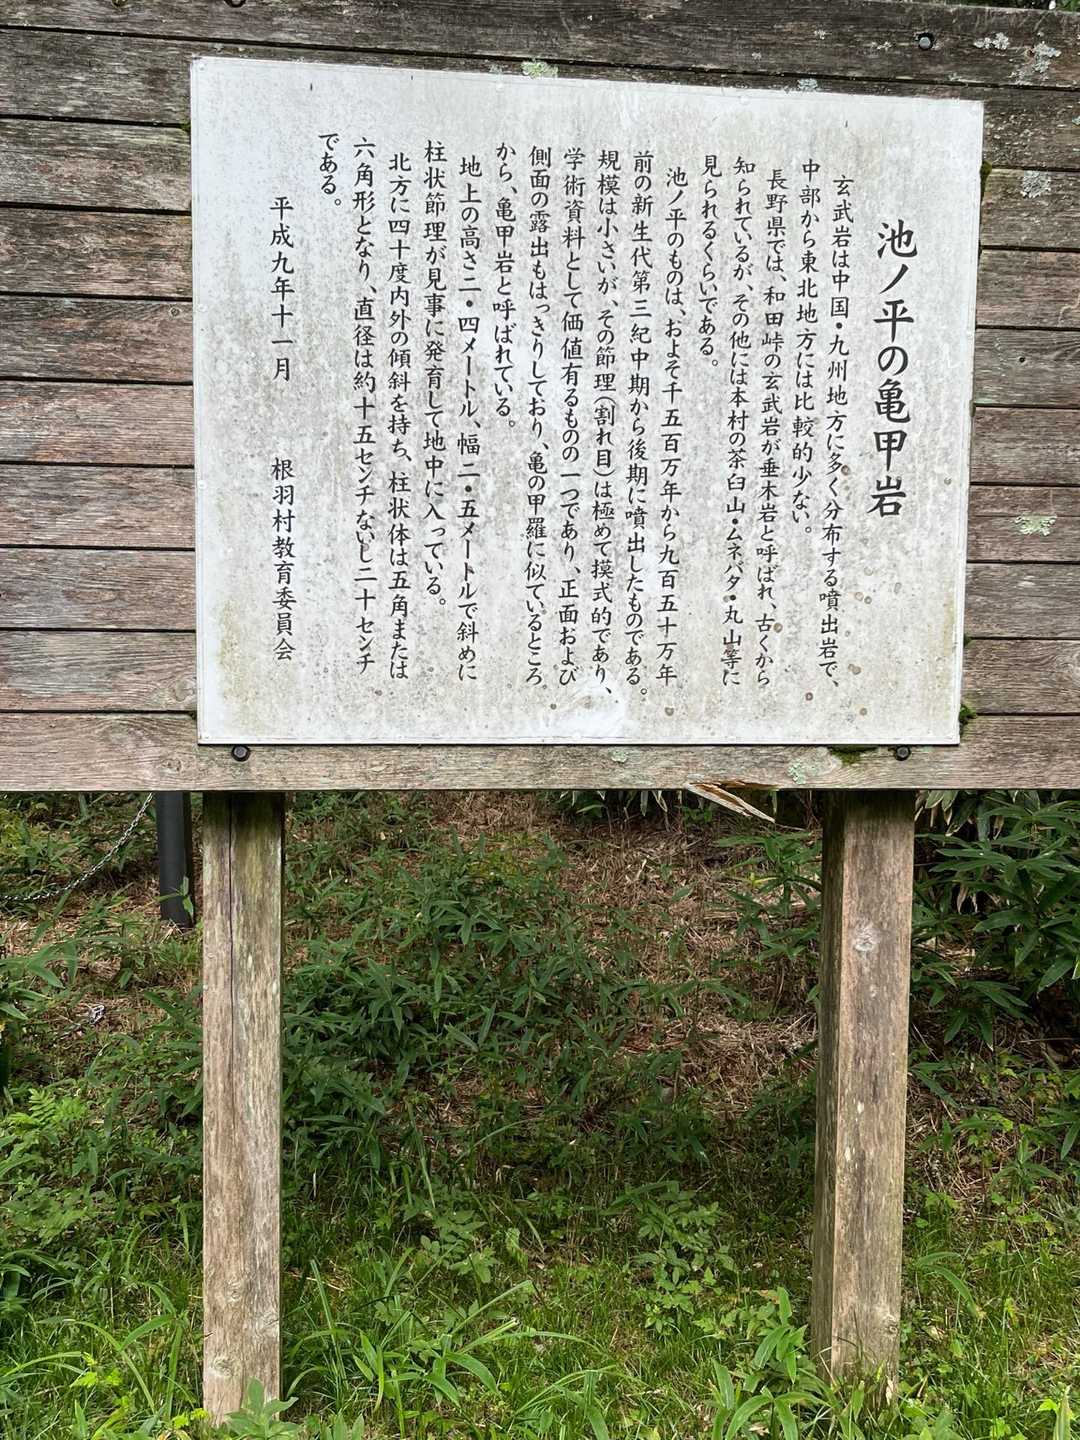 池ノ平の亀甲岩
玄武岩は中国・九州地方に多く分布する噴出岩で、
中部から東北地方には比較的少ない。
長野県では、和田峠の玄武岩が垂木岩と呼ばれ、古くから
知られているが、その他には本村の茶臼山・ムネバタ・丸山等に
見られるくらいである。
池ノ平のものは、およそ千五百万年から九百五十万年
前の新生代第三紀中期から後期に噴出したものである。
規模は小さいが、その節理(割れ目)は極めて摸式的であり、
学術資料として価値有るものの一つであり、正面および
側面の露出もはっきりしており、亀の甲羅に似ているところ
から、亀甲岩と呼ばれている。
地上の高さ二・四メートル、幅二・五メートルで斜めに
柱状節理が見事に発育して地中に入っている。
北方に四十度内外の傾斜を持ち、柱状体は五角または
六角形となり、直径は約十五センチないし二十センチ
である。
平成九年十一月 根羽村教育委員会